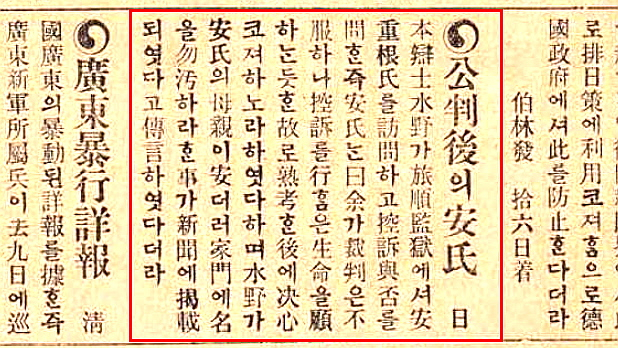 로排日策에利用코져홈으로德
國政府에셔此를防止ᄒᆞᆫ다더라
伯林發 拾六日着
公判後의安氏 日
本辯士水野가旅順監獄에셔安
重根氏를訪問하고控訴與否를
問ᄒᆞᆫ즉安氏는曰余가裁判은不
服하나控訴를行홈은生命을顧
하는듯ᄒᆞᆫ故로熟考ᄒᆞᆫ後에決心
코져하노라하엿다하며水野가
安氏의母親이安더러家門에名
을勿汚하라ᄒᆞᆫ事가新聞에揭載
되엿다고傳言하엿다더라
廣東暴行詳報 淸
國廣東의暴動된詳報를據ᄒᆞᆫ즉
廣東新軍所屬兵이去九日에巡